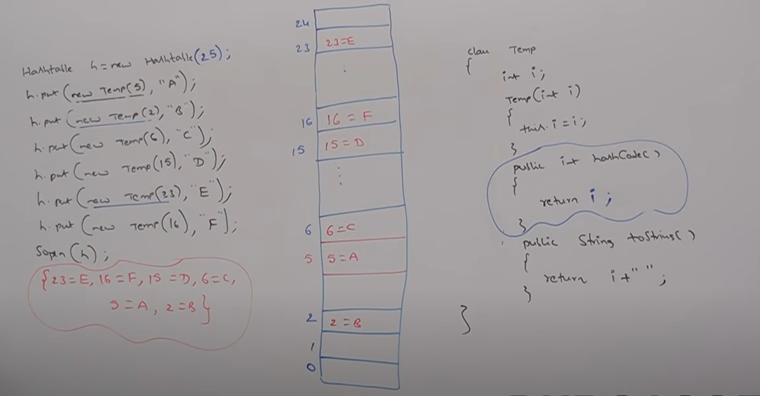 Hashtable h = new Hashtable(25);
h.put (new Temp(5), "A");
h.put (new Temp(2), "B");
h.put (new Temp(6), "C");
h.put (new Temp(15), "D");
h.put (new Temp(23), "E");
h.put (new Temp(16), "F");
Sopln (h);
{23=E, 16=F, 15=D, 6=C,
5=A, 2=B}
24
23 23=E
16 16 = F
15 15 = D
6 6=C
5 5=A
2 2=B
1
0
class Temp
{
int i;
Temp(int i)
{
this.i = i;
}
public int hashCode()
{
return i;
}
public String toString()
{
return i+" ";
}
}